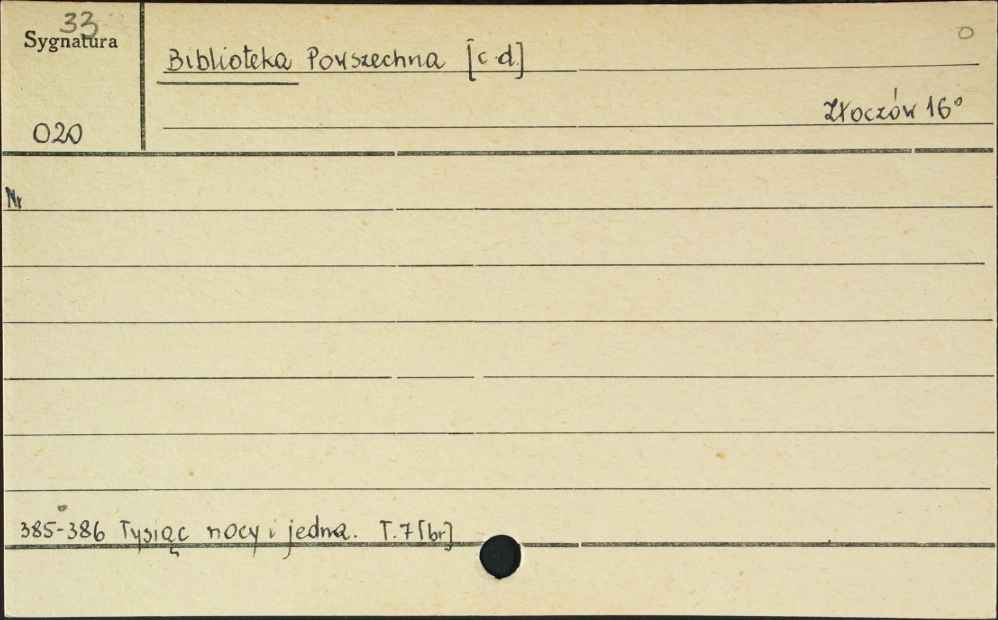 33
Sygnatura
020
Biblioteka Powszechna [c.d.]
Złoczów 16°
Nr
385-386 Tysiąc nocy i jedna. T.7 [br]